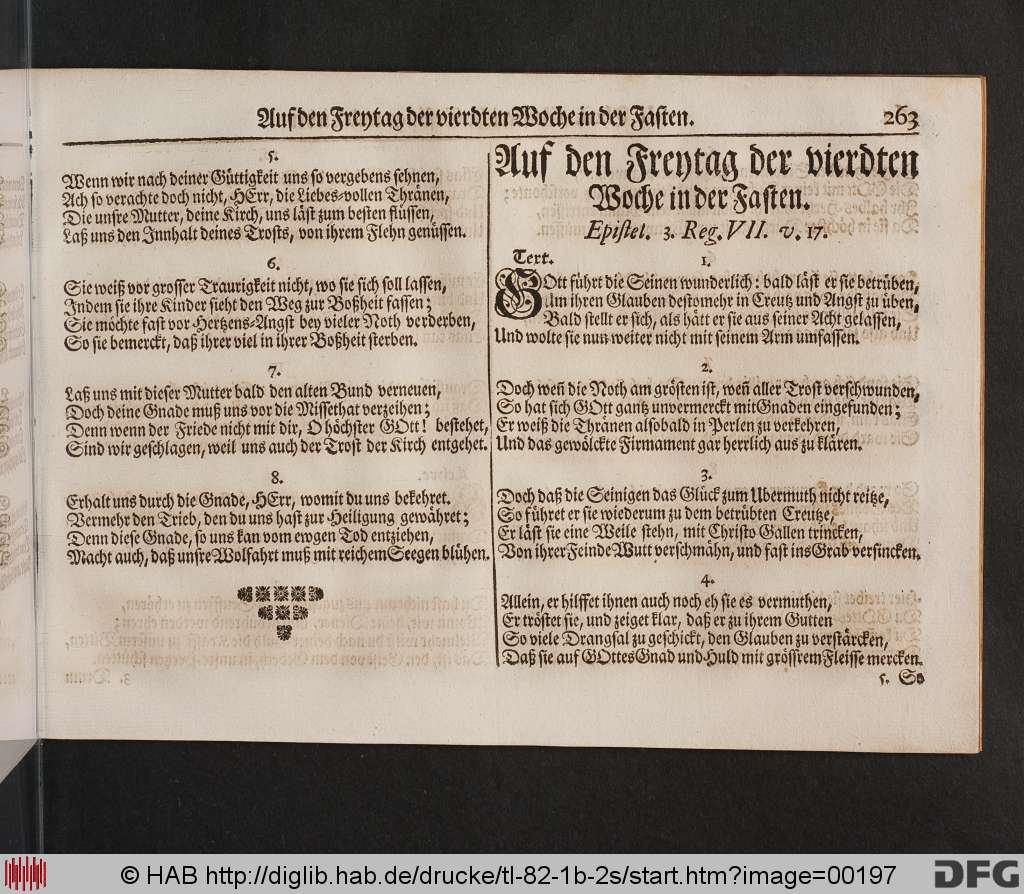 Auf den Freytag der vierdten Woche in der Fasten.
263
5.
Wenn wir nach deiner Güttigkeit uns so vergebens sehnen,
Ach so verachte doch nicht, HErr, die Liebes-vollen Thränen,
Die unsre Mutter, deine Kirch, uns läst zum besten flüssen,
Laß uns den Innhalt deines Trosts, von ihrem Flehn genüssen.
6.
Sie weiß vor grosser Traurigkeit nicht, wo sie sich soll lassen,
Indem sie ihre Kinder sieht den Weg zur Boßheit fassen;
Sie möchte fast vor Hertzens-Angst bey vieler Noth verderben,
So sie bemerckt, daß ihrer viel in ihrer Boßheit sterben.
7.
Laß uns mit dieser Mutter bald den alten Bund verneuen,
Doch deine Gnade muß uns vor die Missethat verzeihen;
Denn wenn der Friede nicht mit dir, O höchster GOtt! bestehet,
Sind wir geschlagen, weil uns auch der Trost der Kirch entgehet.
8.
Erhalt uns durch die Gnade, HErr, womit du uns bekehret.
Vermehr den Trieb, den du uns hast zur Heiligung gewähret;
Denn diese Gnade, so uns kan vom ewgen Tod entziehen,
Macht auch, daß unsre Wolfahrt muß mit reichem Seegen blühen.
Auf den Freytag der vierdten
Woche in der Fasten.
Epistel. 3. Reg. VII. v. 17.
Text.
1.
GOtt führt die Seinen wunderlich: bald läst er sie betrüben,
Um ihren Glauben destomehr in Creutz und Angst zu üben,
Bald stellt er sich, als hätt er sie aus seiner Acht gelassen,
Und wolte sie nun weiter nicht mit seinem Arm umfassen.
2.
Doch weñ die Noth am grösten ist, weñ aller Trost verschwunden,
So hat sich GOtt gantz unvermerckt mit Gnaden eingefunden;
Er weiß die Thränen alsobald in Perlen zu verkehren,
Und das gewölckte Firmament gar herrlich aus zu klären.
3.
Doch daß die Seinigen das Glück zum Ubermuth nicht reitze,
So führet er sie wiederum zu dem betrübten Creutze,
Er läst sie eine Weile stehn, mit Christo Gallen trincken,
Von ihrer Feinde Wutt verschmähn, und fast ins Grab versincken.
4.
Allein, er hilffet ihnen auch noch eh sie es vermuthen,
Er tröstet sie, und zeiget klar, daß er zu ihrem Gutten
So viele Drangsal zu geschickt, den Glauben zu verstärcken,
Daß sie auf GOttes Gnad und Huld mit grössrem Fleisse mercken.
5. So
© HAB http://diglib.hab.de/drucke/tl-82-1b-2s/start.htm?image=00197
DFG